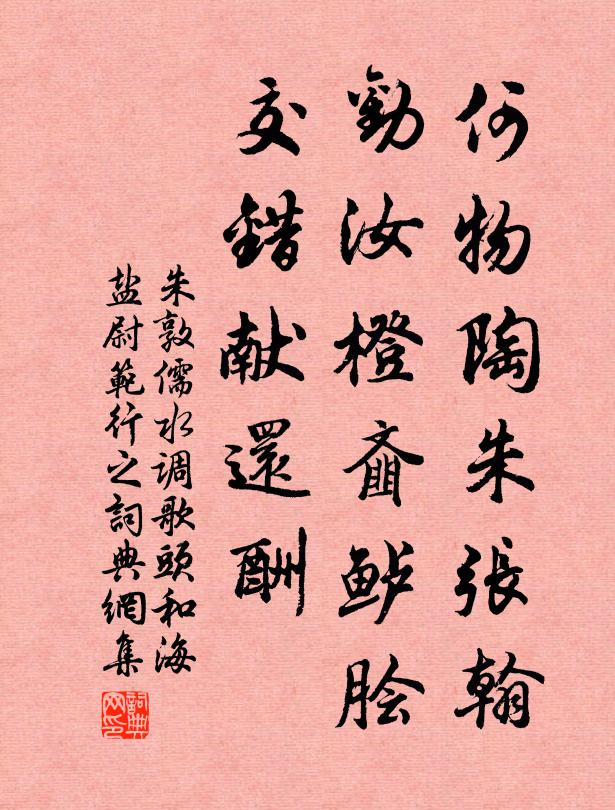 何物陶朱張翰
勸汝橙齑鲈脍
交錯献還酬
朱敦儒水调歌頭和海
盐尉範行之詞典網集
詞典网印